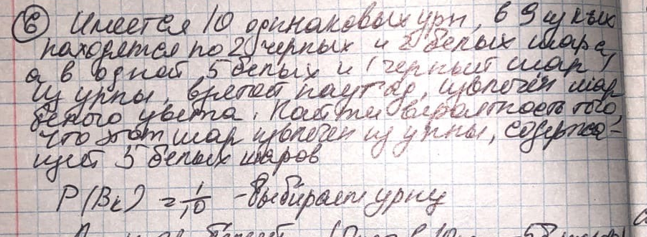 ⑥ Имеется 10 одинаковых урн, в 9 из кых
находятся по 2 черных и 2 белых шара,
а в одной 5 белых и 1 черный шар.
Из урны, взятой наугад, извлечен шар
белого цвета. Найти вероятность того,
что этот шар извлечен из урны, содержа-
щей 5 белых шаров
P(Bк) = 1/10 - выбирает урну